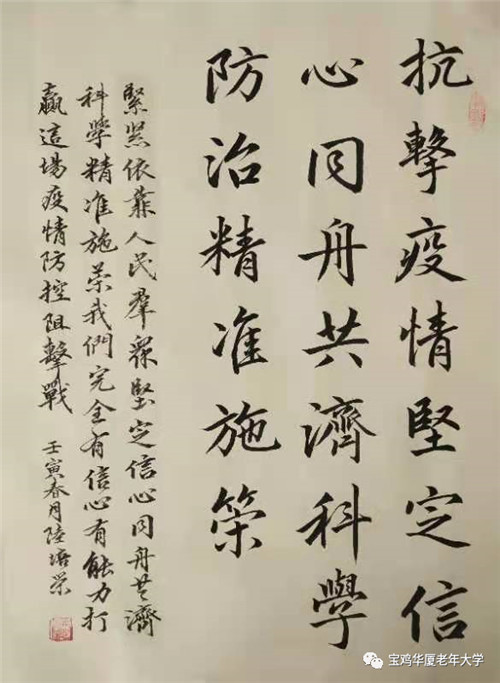 抗擊疫情堅定信
心同舟共濟科學
防治精准施策
緊紧依靠人民羣衆堅定信心同舟共濟
科學精准施策我們完全有信心有能力打
贏這場疫情防控阻擊戰
壬寅春月陸培荣
宝鸡华厦老年大学